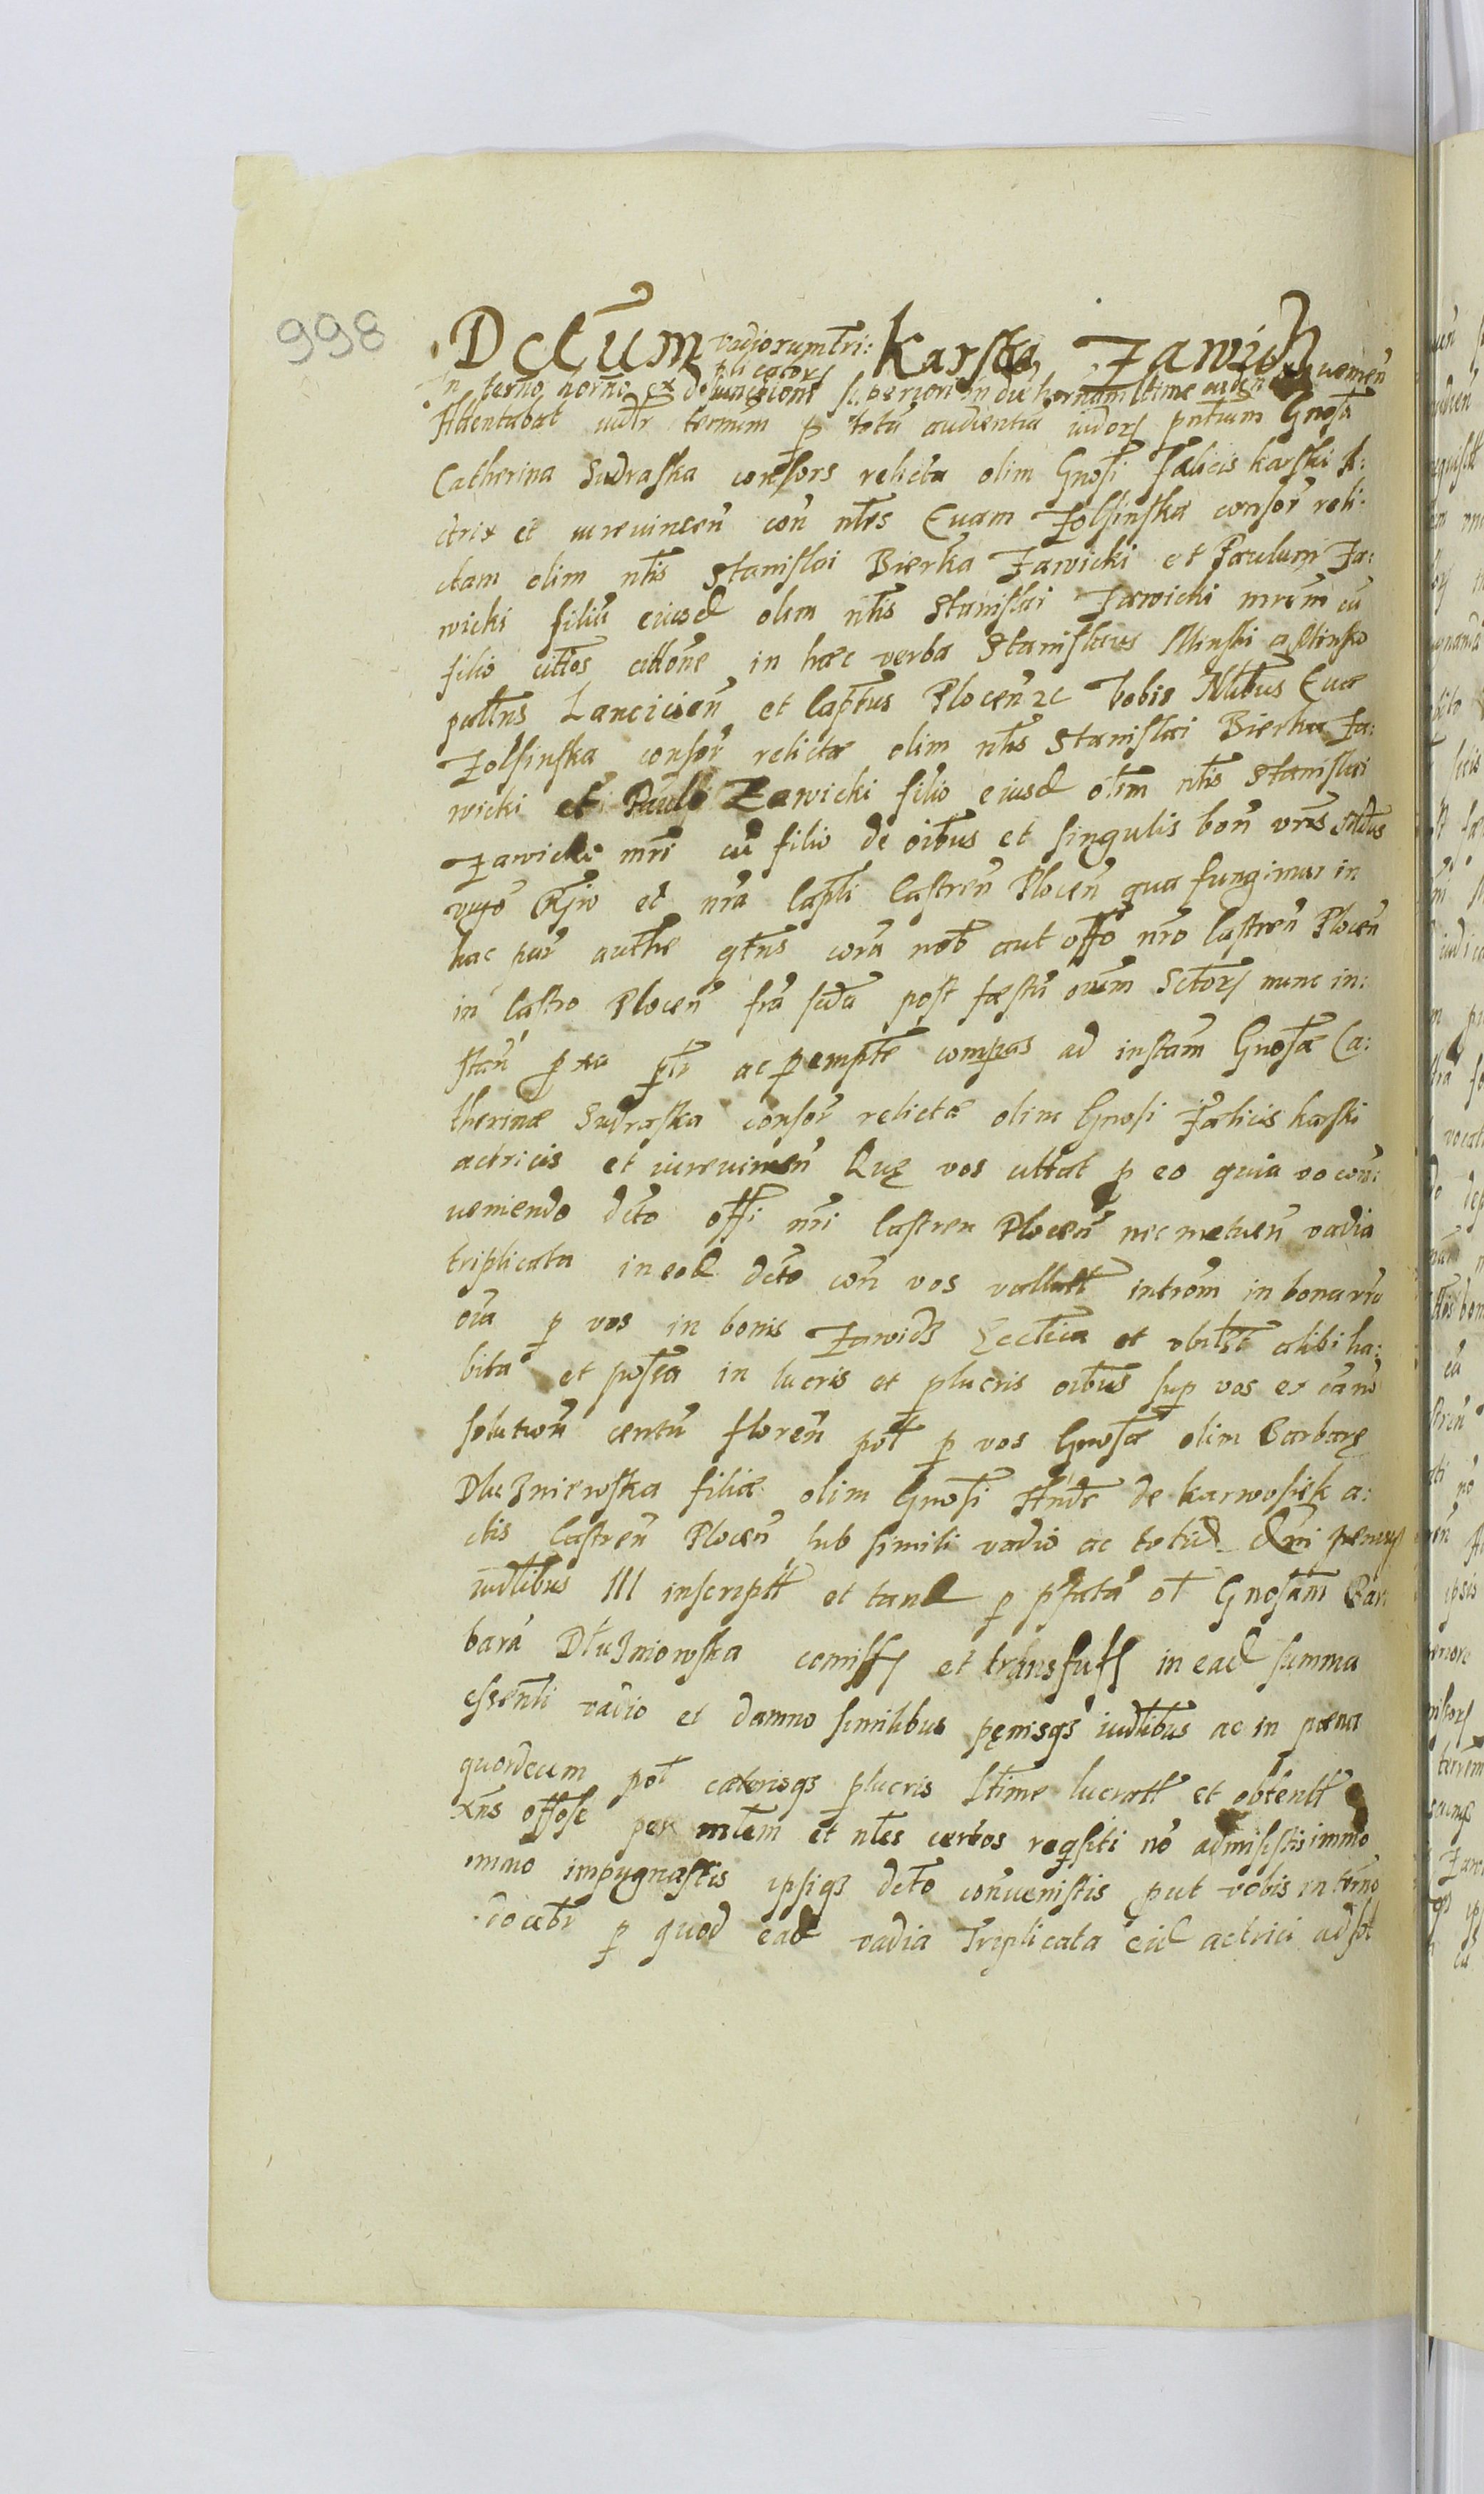 998
Dctum vadiorum tri: Karska Zawidz
plicator
In termo horno ex defunctione superiori in die hornum ltime uemen
Attentabat iudlr termm p totu audientiu iudor pntium Gnosa
Catherina Sudraska consors relicta olim Gnosi Fælicis Karski A:
ctrix et iurevincen con nles Evam Zolsinska consor reli:
ctam olim nlis Stanislai Bierka Zawicki et Paulum Za:
wicki filiu eiusd olim nlis Stanislai Zawicki mrem cu
filio cittos cittone in hæc verba Stanislaus Minski a Minsko
pallns Lancicien et Captus Plocen 2c Vobis Nlibus Evæ
Zolsinska consor relictæ olim nlis Stanislai Bierka Za:
wicki et Pauli Zawicki filio eiusd olim nlis Stanislai
Zawicki mri cu filio de oibus et singulis bon vris Mdus
vigo Rgio et nra Capli Castren Plocen qua fungimur in
hac par authe qtns cora nob aut offo nro Castren Plocen
in Castro Plocen fra scda post fæstu oium Sctor nunc in:
stan p xa plr ac pempte compas ad instam Gnosæ Ca:
therinæ Sudraska consor relictæ olim Gnosi Fælicis Karski
actricis et iurevincen Quę vos cittat p eo quia vo con:
veniendo dcto offi nri Castren Plocen nec metuen vadia
triplicata in eod dcto con vos vallatt introm in bona vra
oia p vos in bonis Zawidz Ecclica et vbilst alibi ha:
bita et postea in lucris et plucris oibus sup vos ex cam
solution centu floren pol p vos Gnosæ olim Barbarę
Dluzniewska filiæ olim Gnosi Andr de Karwosiek a:
ctis Castren Plocen sub simili vadio ac totid dmi pænis
iudlibus III inscriptt et tand p pfata ol Gnosam Bar
bara Dluzniowska comiss et transfuss in ead summa
essentli vadio et damno similibus pęnisqs iudlibus ac in pæna
quordecim pol cæterisqs plucris ltime lucratt et obtentt
xns offose per mlem et nles certos reqsiti no admisistis immo
immo impugnastis ipsiqs dcto convenistis put vobis in termo
docebr p quod ead vadia Triplicata eid actrici ad sol